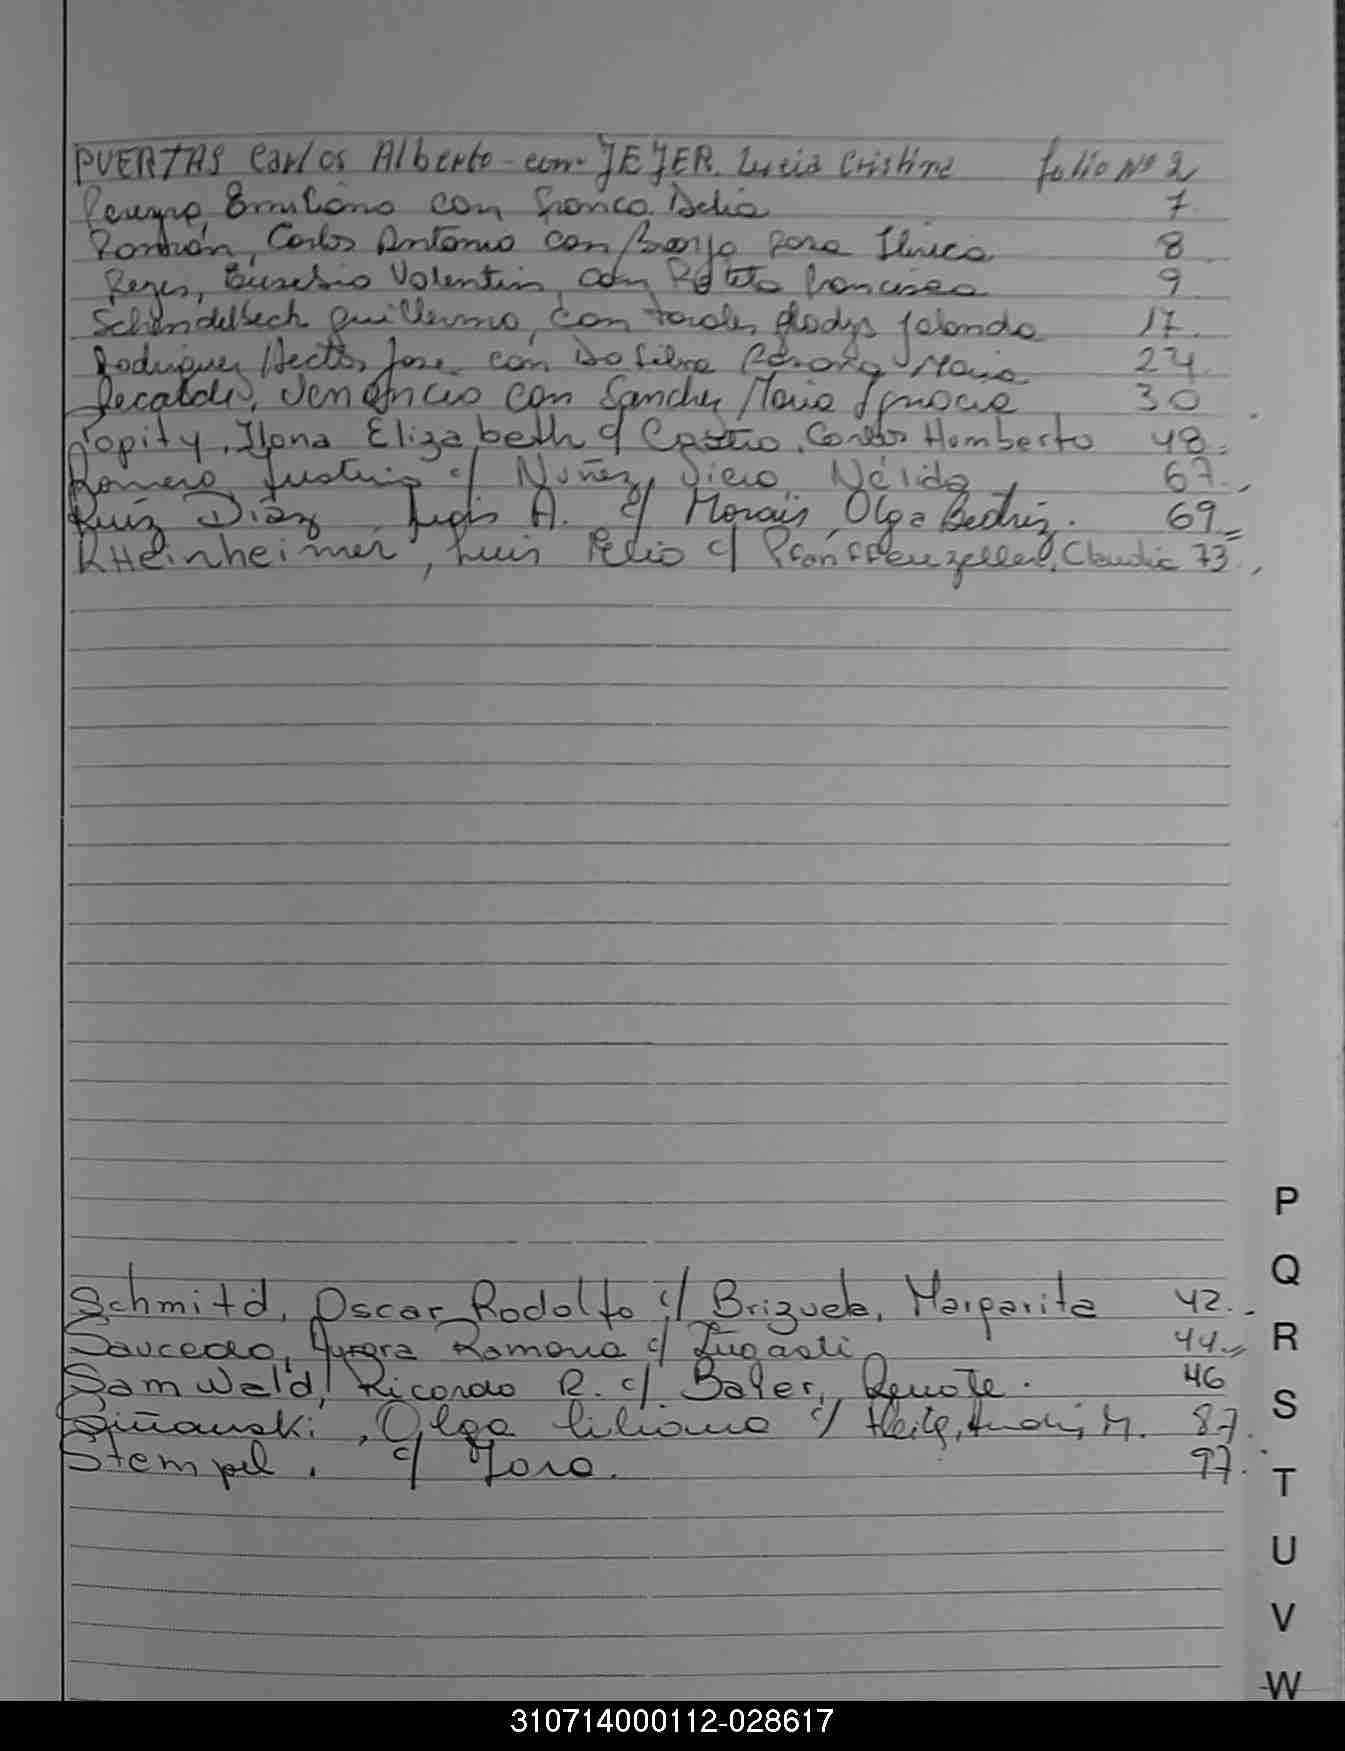 PUERTAS Carlos Alberto - con JEJER Lucia Cristina folio Nº 2
Pereyra, Emiliano con Franco Delia 7
Román, Carlos Antonio con Rosa 8
Reyes, Eusebio Valentin, con Francisca 9
Schindelbech Guillermo, con Gladys Jolanda 17
Rodriguez Hector Jose con Da Silva Maria 24
Recalde, Venancio con Sanchez Maria Ignacia 30
Popity, Ilona Elizabeth c/ Castro, Carlos Homberto 48
Romero Justino c/ Nuñez, Nélida 67
Ruiz Diaz, Luis A. c/ Morais, Olga Beatriz. 69
RHeinheimer, Luis c/ Claudia 73
Schmitd, Oscar Rodolfo c/ Brizuela, Margarita 42
Saucedo, Aurora Ramona c/ 44
Samwald, Ricardo R. c/ Renate. 46
, Olga Liliana c/ M. 87
Stempel. c/ Toro. 97.
P
Q
R
S
T
U
V
W
310714000112-028617